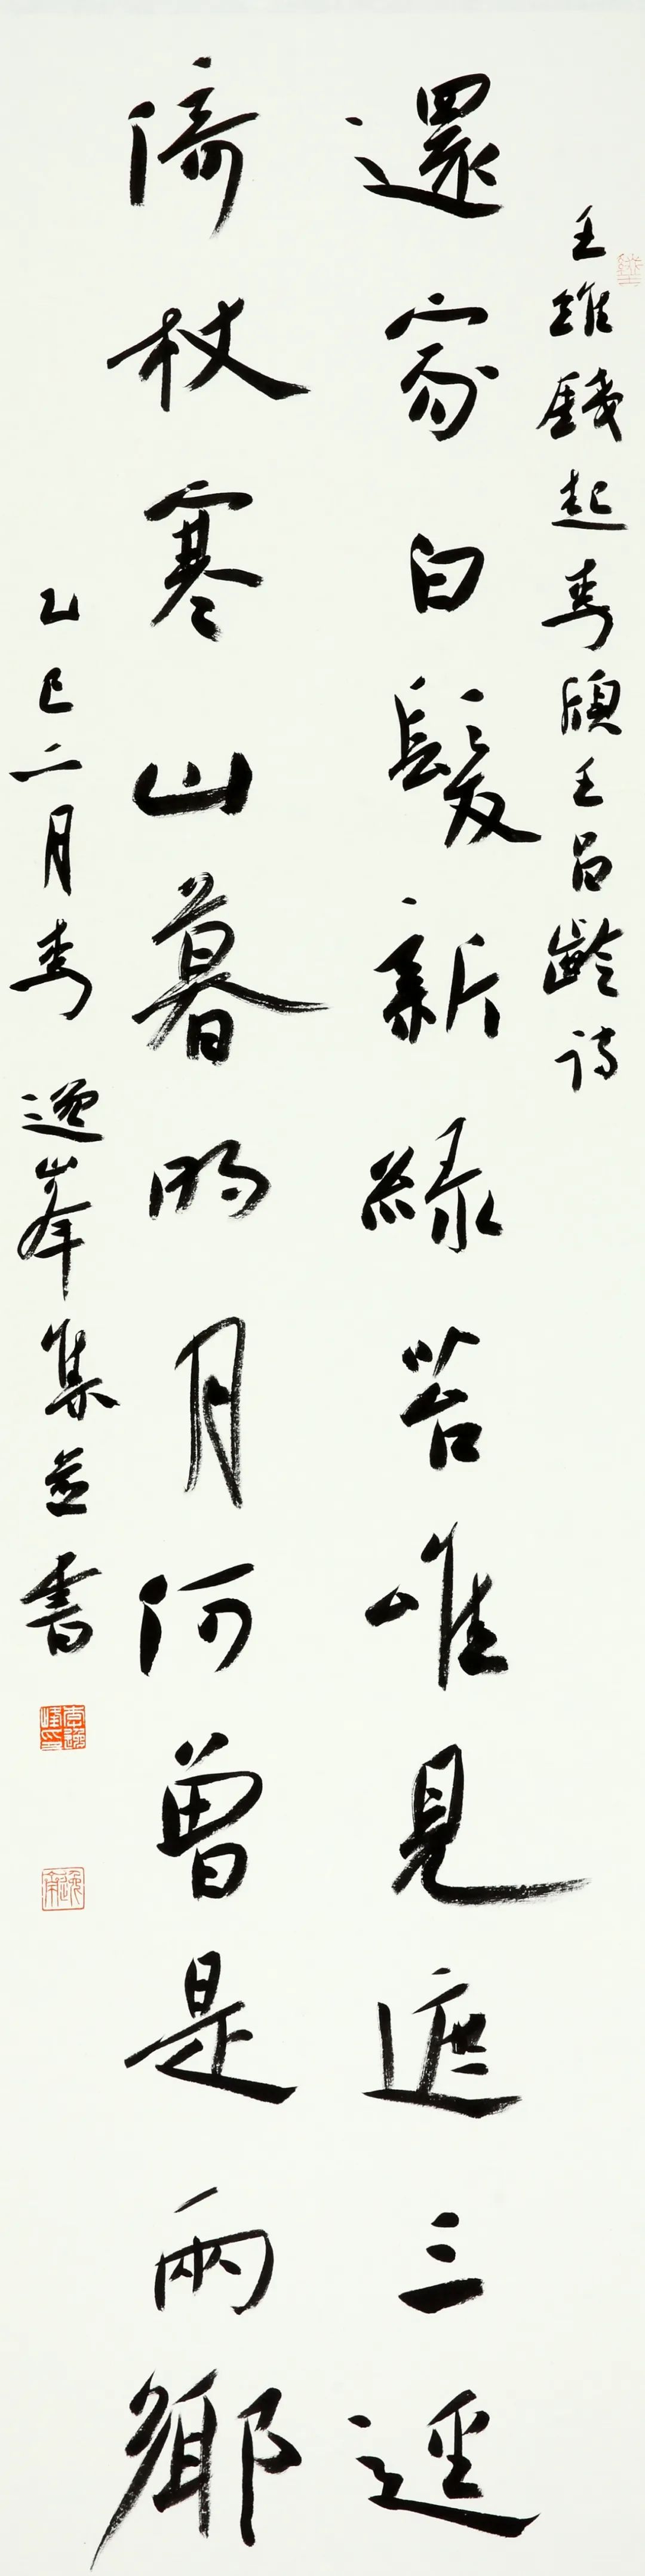 王維錢起李頎王昌齡詩
還家白髮新綠苔唯見遮三逕
倚杖寒山暮明月何曾是兩鄉
乙巳二月李逸峯集並書
李逸峰印